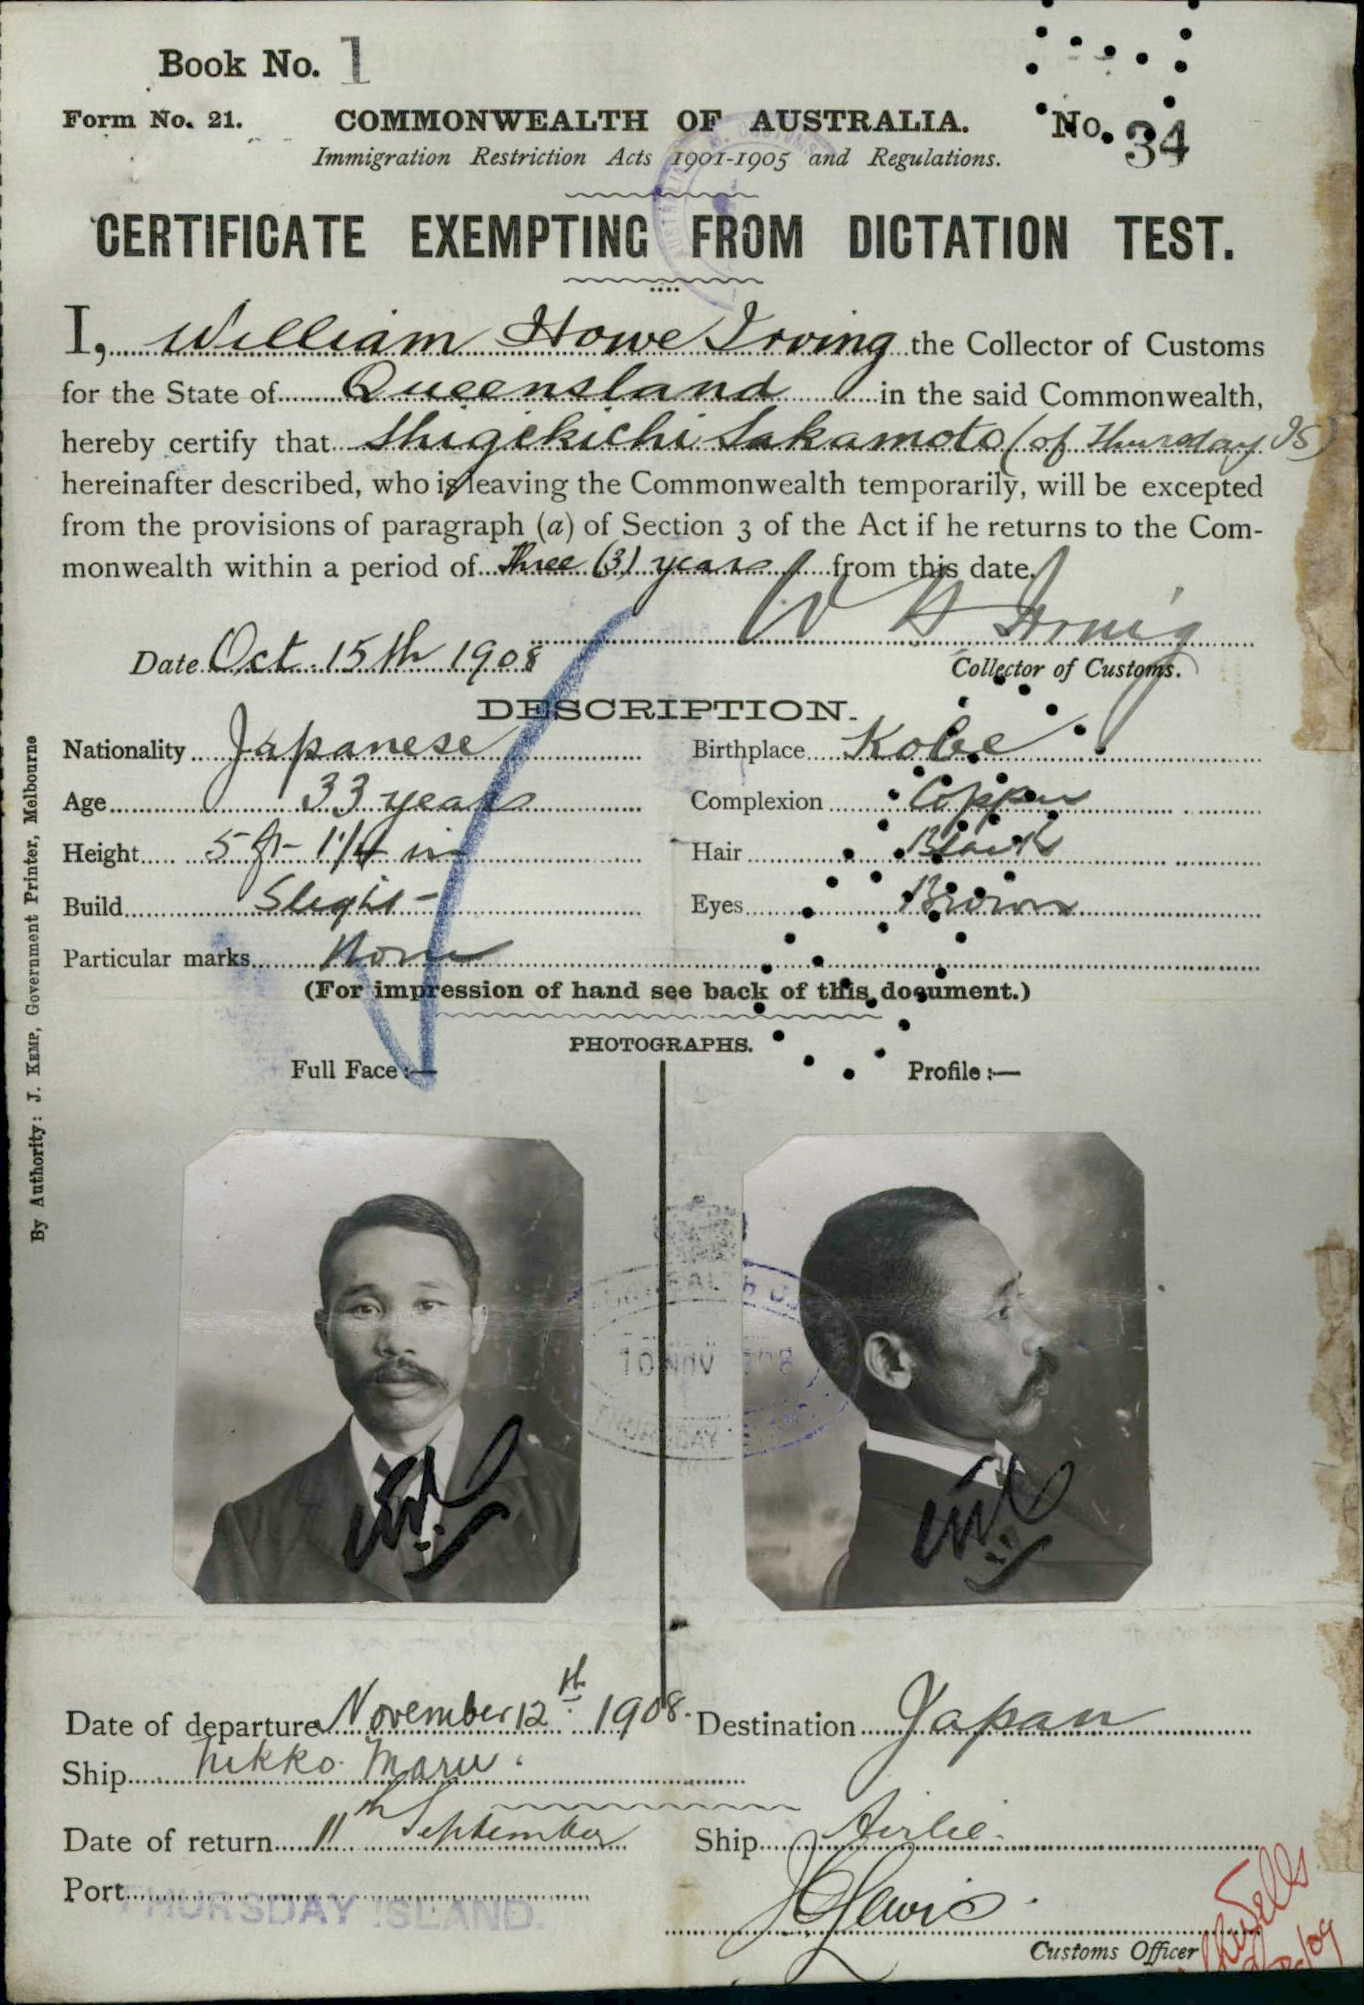 Book No. 1
Form No. 21. COMMONWEALTH OF AUSTRALIA. No. 34
Immigration Restriction Acts 1901-1905 and Regulations.
CERTIFICATE EXEMPTING FROM DICTATION TEST.
I, William Howe Irving the Collector of Customs
for the State of Queensland in the said Commonwealth,
hereby certify that Shigekichi Sakamoto (of Thursday Is)
hereinafter described, who is leaving the Commonwealth temporarily, will be excepted
from the provisions of paragraph (a) of Section 3 of the Act if he returns to the Com-
monwealth within a period of Three (3) years from this date.
W H Irving
Date Oct. 15th 1908 Collector of Customs.
DESCRIPTION.
Nationality Japanese Birthplace Kobe
Age 33 years Complexion Copper
Height 5 ft - 1 1/4 in Hair Black
Build Slight - Eyes Brown
Particular marks None
(For impression of hand see back of this document.)
PHOTOGRAPHS.
Full Face :— Profile :—
Date of departure November 12th 1908. Destination Japan
Ship Nikko Maru.
Date of return 11th September Ship Airlie.
Port THURSDAY ISLAND.
Lewis
Customs Officer
By Authority: J. KEMP, Government Printer, Melbourne